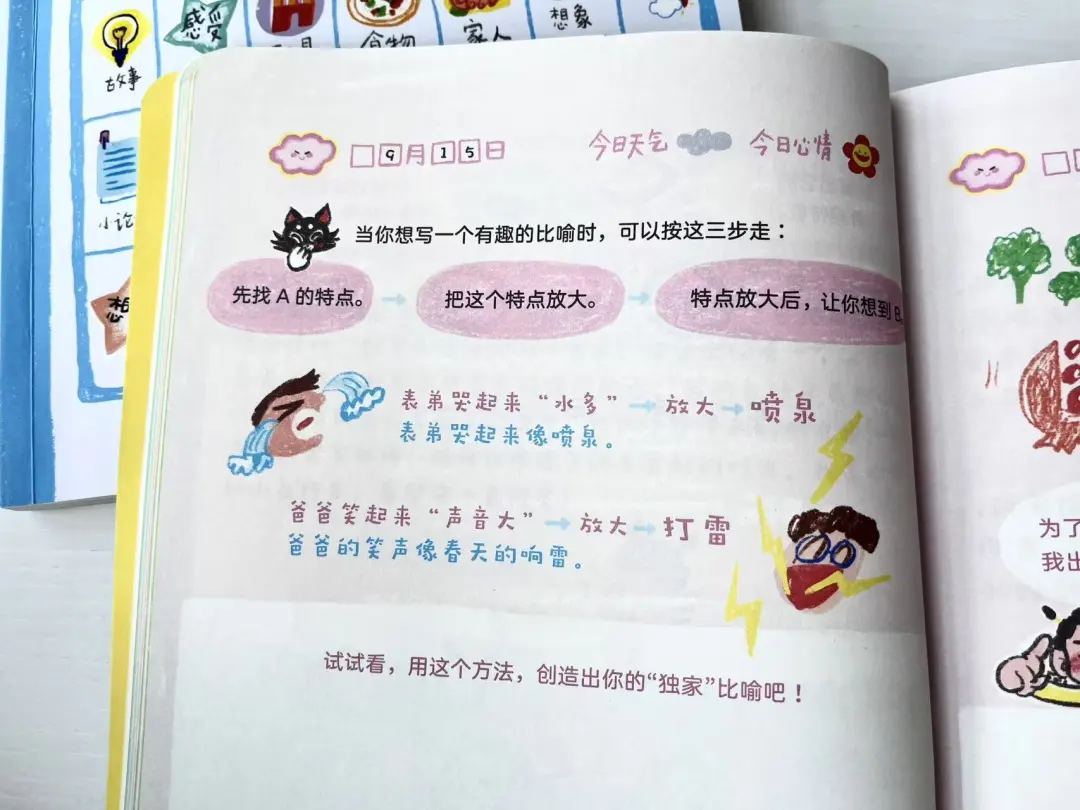 故事
感受
食物
家人
想象
小论
想
9月15日
今日天气
今日心情
当你想写一个有趣的比喻时，可以按这三步走：
先找 A 的特点。 → 把这个特点放大。 → 特点放大后，让你想到 B。
表弟哭起来“水多”→放大→喷泉
表弟哭起来像喷泉。
爸爸笑起来“声音大”→放大→打雷
爸爸的笑声像春天的响雷。
试试看，用这个方法，创造出你的“独家”比喻吧！
为了
我出